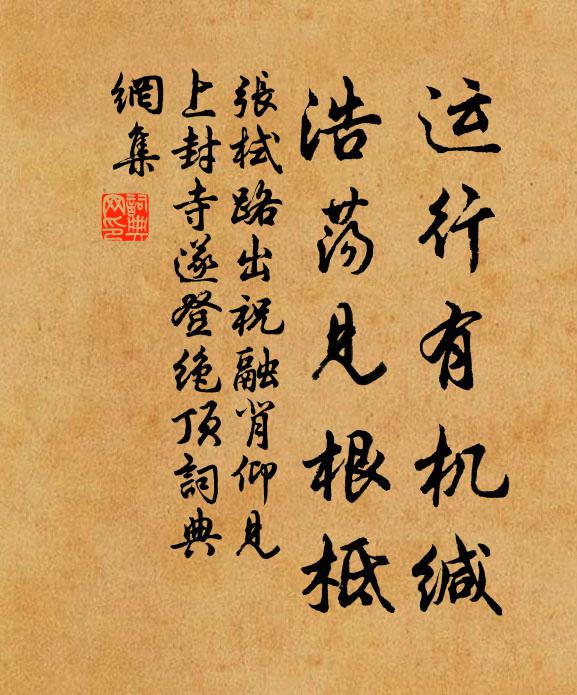 运行有机缄
浩荡见根柢
張栻路出祝融背仰見
上封寺遂登绝顶詞典
網集
詞典
网印